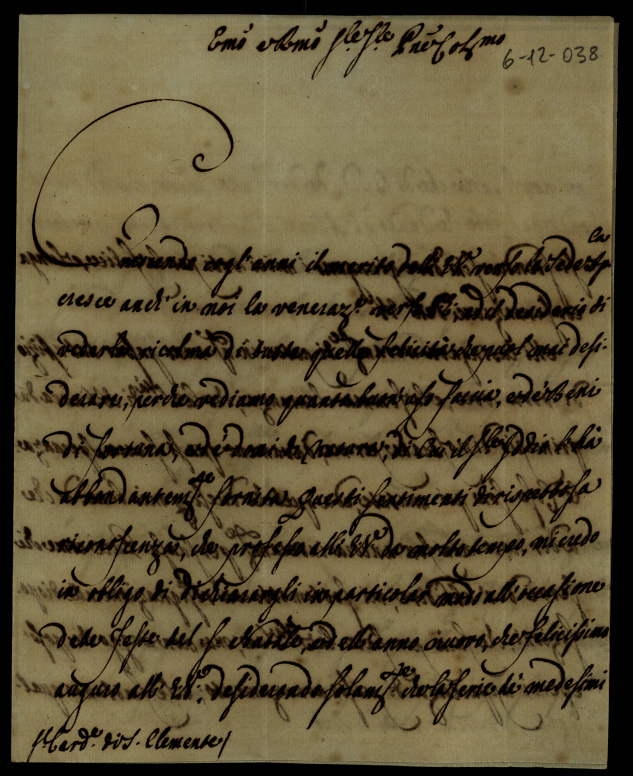 Emõ e Rmõ Sig.re Sig.re Pnẽ Col.mo
6-12-038
Crescendo cogl' anni il merito dell' E.V. verso la Sede Ap.ca
cresce anch' in noi la veneraz.ne verso di lei, ed il desiderio di
vederla ricolma di tutte quelle felicità, che puol mai desi-
derare, perche vediamo quanto buon uso faccia, e de' Beni
di fortuna, e de' doni di Natura, di cui il Sig.re Iddio l' hà
abbondantem.te fornita. Questi sentimenti di rispettosa
riconoscenza, che professo all' E.V. da molto tempo, mi credo
in obligo di dichiarargli in particolar modo all' occasione
delle feste del S. Natale, ed all' anno nuovo, che felicissimo
auguro all' E.V., desiderando solam.te che la serie de' medesimi
S.r Card.e di S. Clemente